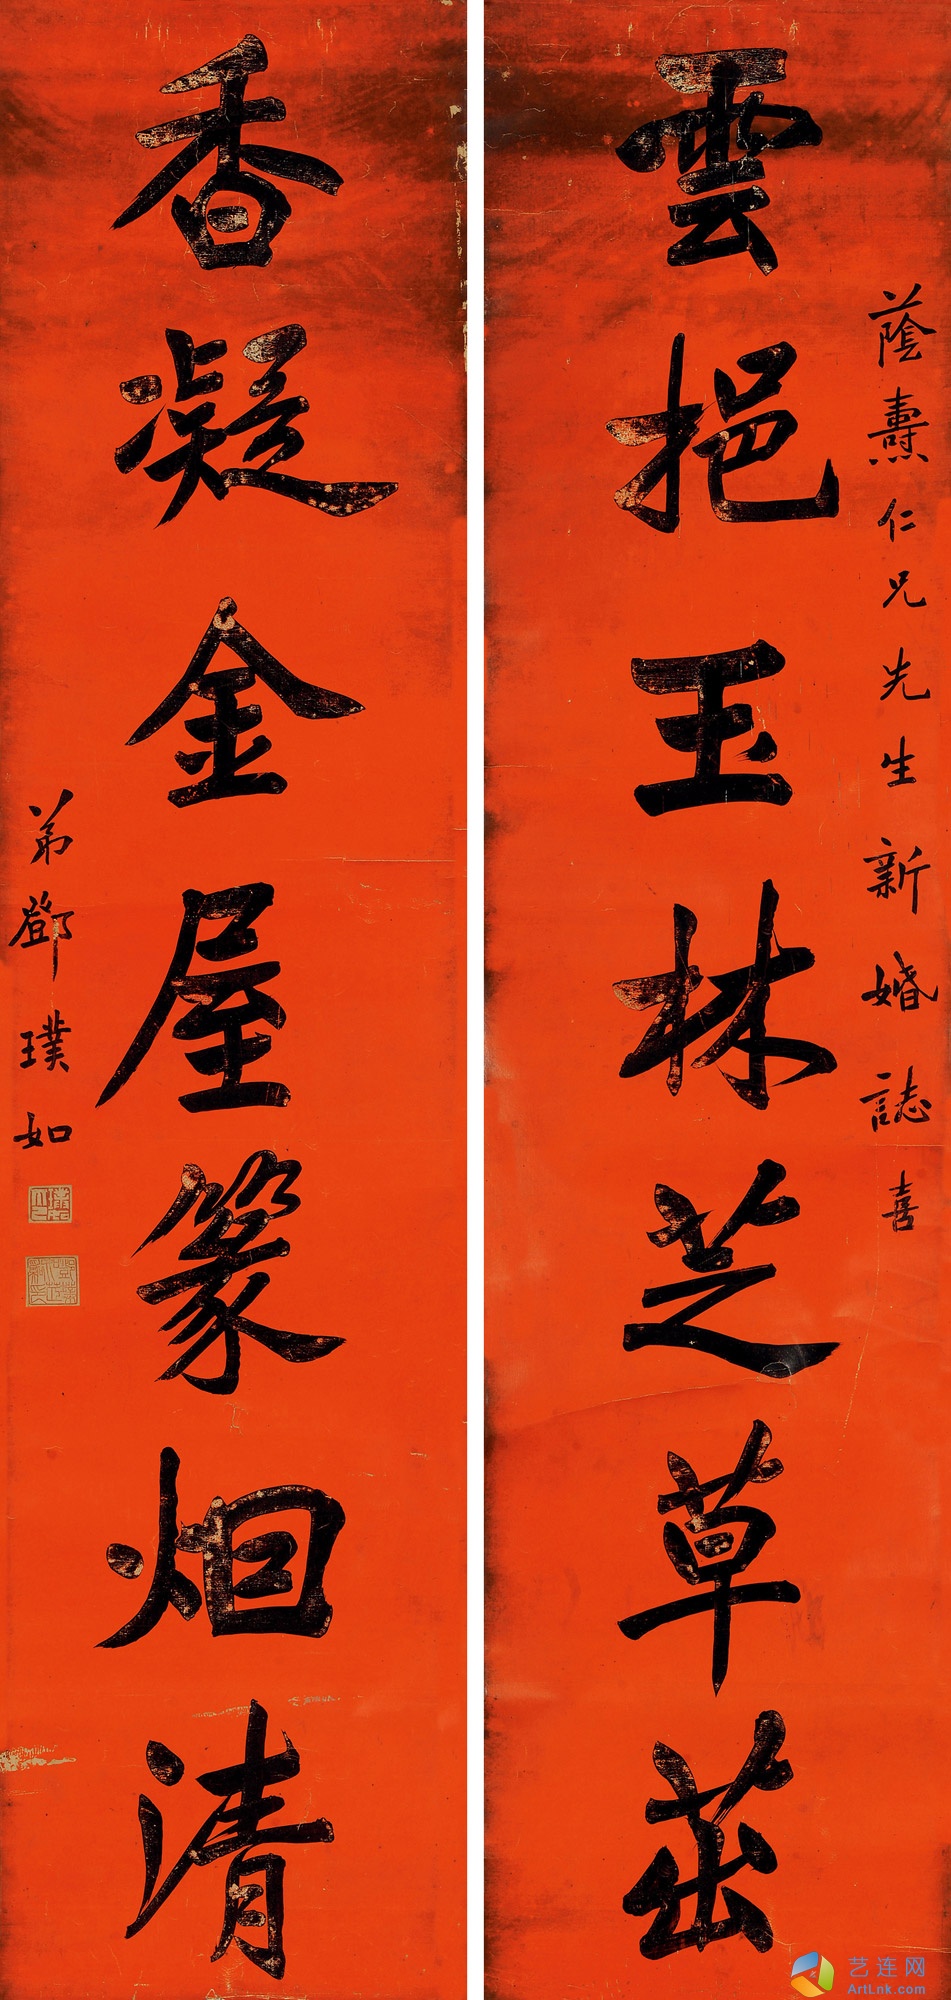 蔭燾仁兄先生新婚誌喜
雲挹玉林芝草茁
香凝金屋篆烟清
弟鄧璞如
艺连网
ArtLnk.com